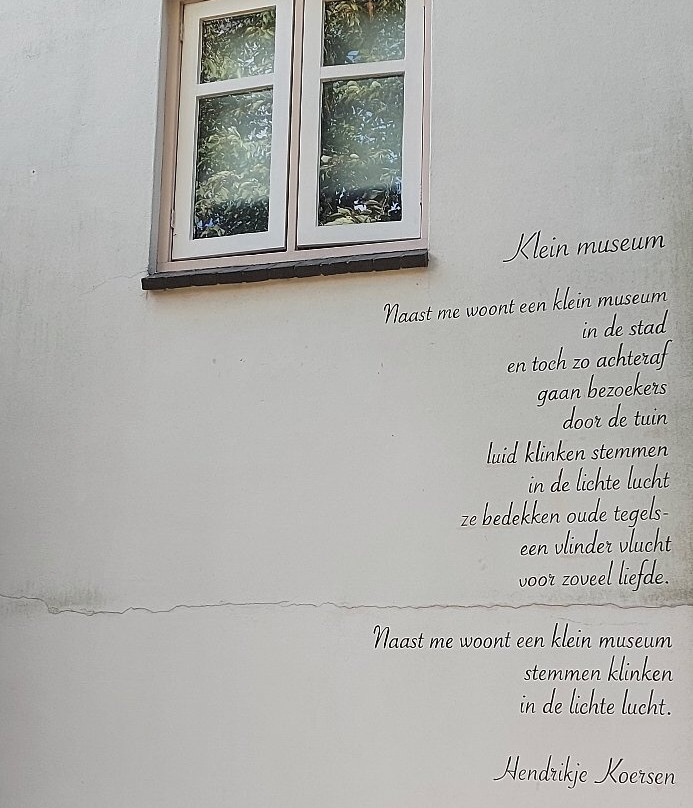 Klein museum
Naast me woont een klein museum
in de stad
en toch zo achteraf
gaan bezoekers
door de tuin
luid klinken stemmen
in de lichte lucht
ze bedekken oude tegels-
een vlinder vlucht
voor zoveel liefde.
Naast me woont een klein museum
stemmen klinken
in de lichte lucht.
Hendrikje Koersen